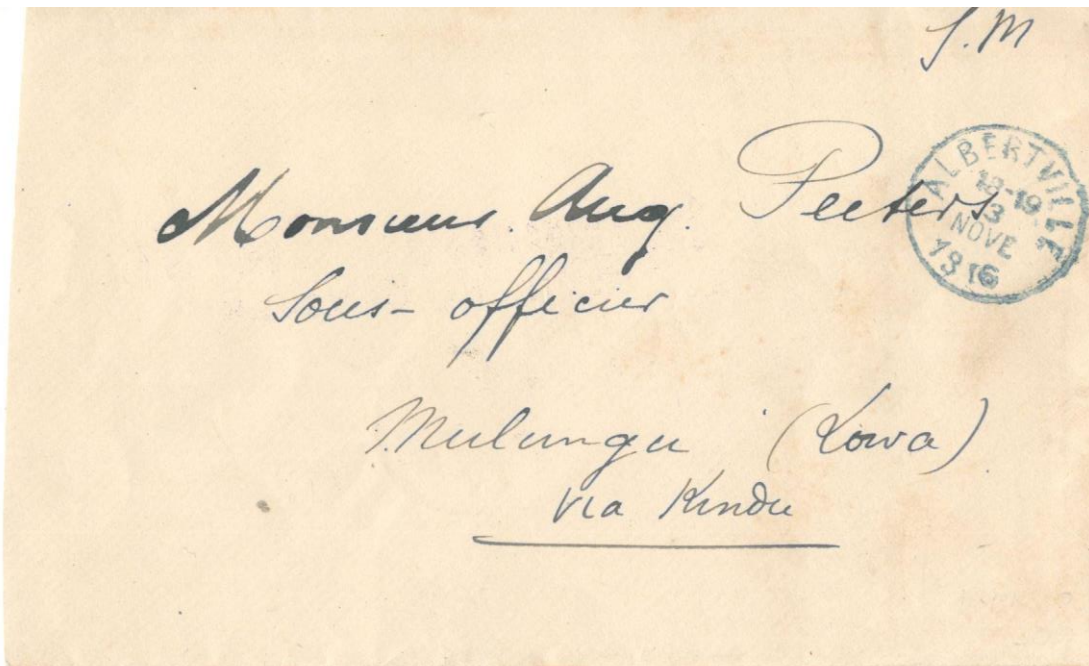 S.M
Monsieur. Aug. Peeters
ALBERTVILLE
18-19
3
NOVE
1916
Sous-officier
Mulungu (Lowa)
via Kindu